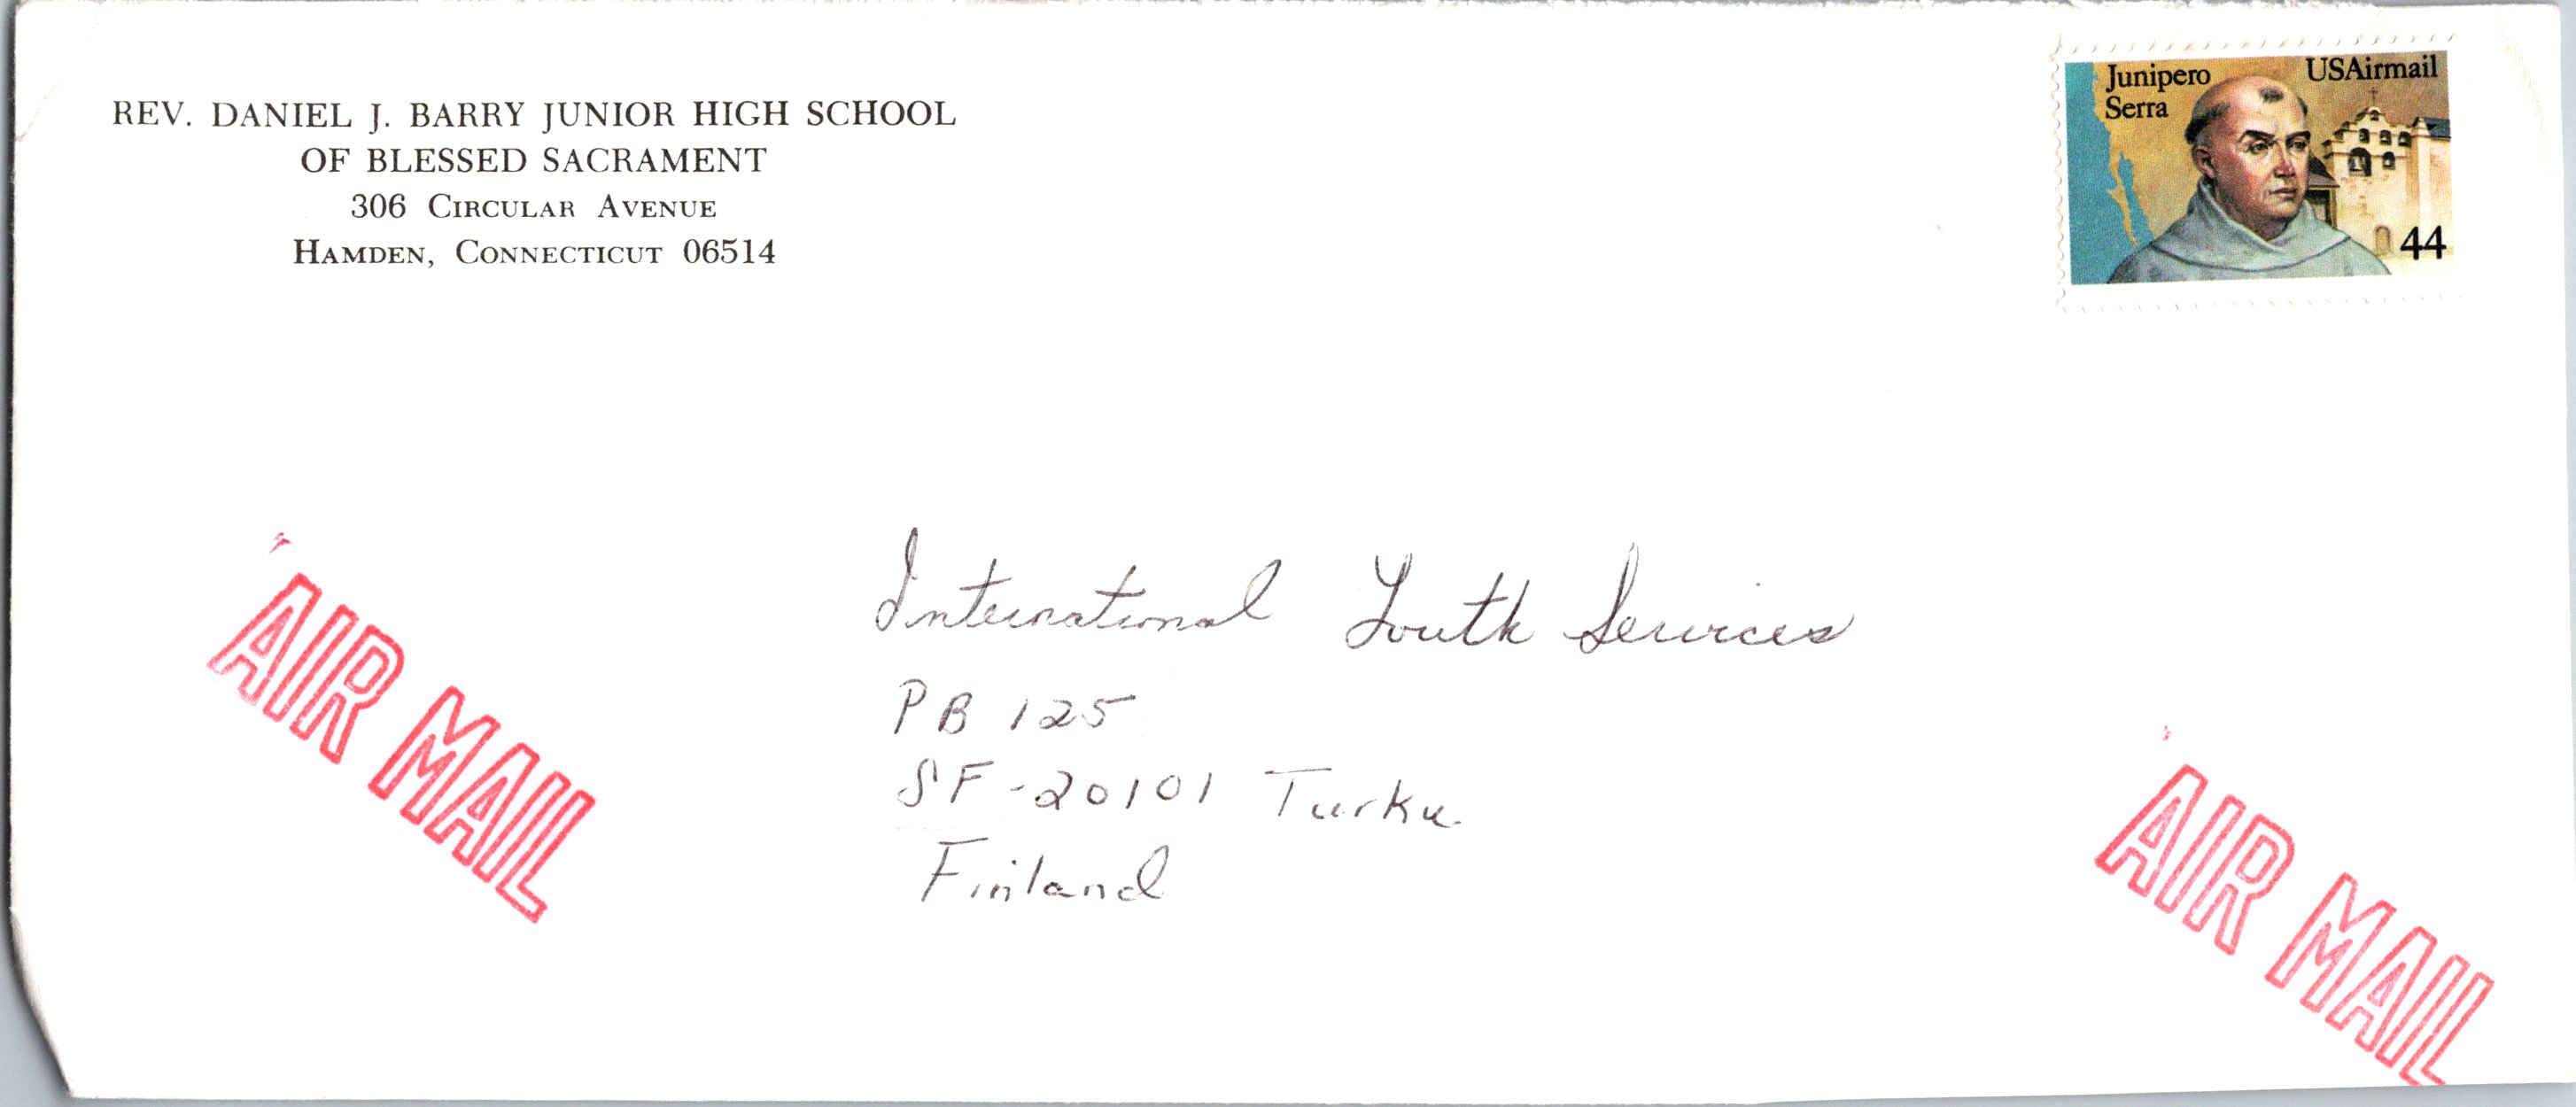 REV. DANIEL J. BARRY JUNIOR HIGH SCHOOL
OF BLESSED SACRAMENT
306 CIRCULAR AVENUE
HAMDEN, CONNECTICUT 06514
Junipero
Serra
USAirmail
44
International Youth Services
PB 125
SF-20101 Turku
Finland
AIR MAIL
AIR MAIL